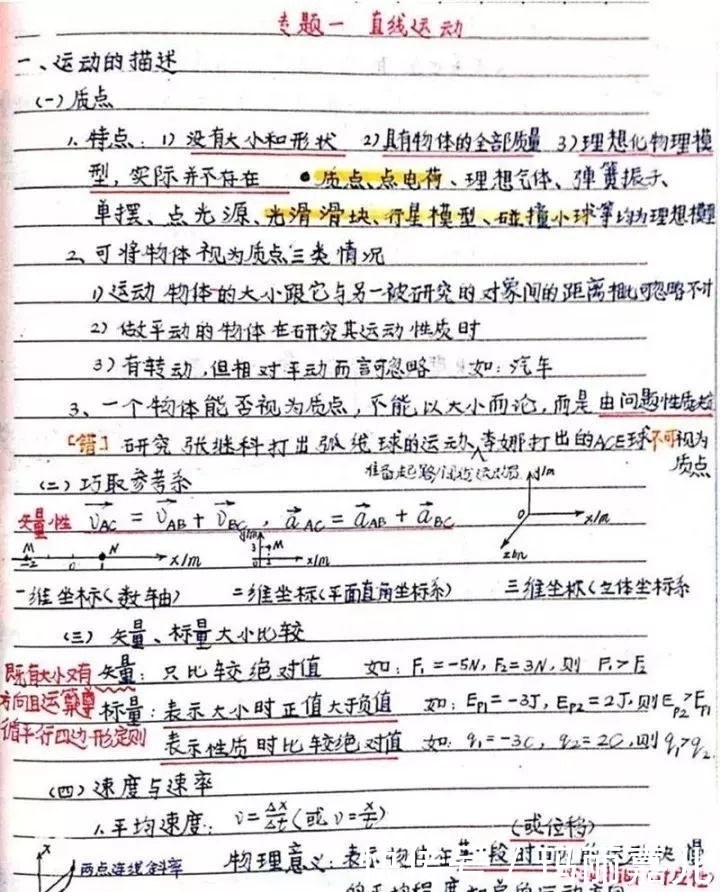 专题一 直线运动
一、运动的描述
(一)质点
1、特点：1) 没有大小和形状 2)具有物体的全部质量 3)理想化物理模
型，实际并不存在 ●质点、点电荷、理想气体、弹簧振子、
单摆、点光源、光滑滑块、行星模型、碰撞小球等均为理想模型
2、可将物体视为质点三类情况
1)运动物体的大小跟它与另一被研究的对象间的距离相比可忽略不计
2) 做平动的物体在研究其运动性质时
3) 有转动，但相对平动而言可忽略 如：汽车
3、一个物体能否视为质点，不能以大小而论，而是由问题性质决定
[错] 研究张继科打出弧线球的运动、李娜打出的ACE球不可视为
质点
(二) 巧取参考系
y/m
矢量性 v_AC = v_AB + v_BC，a_AC = a_AB + a_BC
0 x/m
z/m
M N x/m
-2 0 1
y/m 3 M x/m
一维坐标(数轴) 二维坐标(平面直角坐标系) 三维坐标(立体坐标系
(三) 矢量、标量大小比较
既有大小又有 矢量：只比较绝对值 如：F₁=-5N, F₂=3N, 则 F₁>F₂
方向且运算遵 标量：表示大小时正值大于负值 如：Ep1=-3J, Ep2=2J, 则Ep2>Ep1
循平行四边形定则 表示性质时比较绝对值 如：q₁=-3C, q₂=2C, 则q₁>q₂
(四)速度与速率
1、平均速度：v=Δx/Δt(或v=x/t)
(或位移)
x 两点连线斜率 物理意义：表 物体在某段时